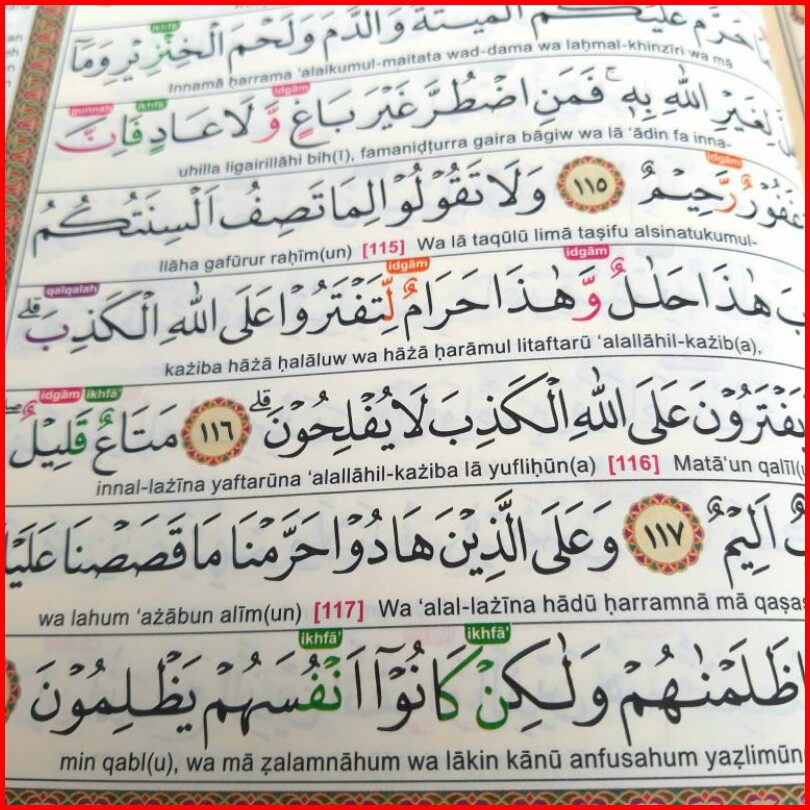 حَرَّمَ عَلَيْكُمُ الْمَيْتَةَ وَالدَّمَ وَلَحْمَ الْخِنْزِيْرِ وَمَآ
ikhfā'
Innamā ḥarrama ‘alaikumul-maitata wad-dama wa laḥmal-khinzīri wa mā
لِغَيْرِ اللّٰهِ بِهٖ ۚ فَمَنِ اضْطُرَّ غَيْرَ بَاغٍ وَّلَا عَادٍ فَاِنَّ
idgām ikhfā' gunnah
uhilla ligairillāhi bih(ī), famaniḍṭurra gaira bāgiw wa lā ‘ādin fa inna-
غَفُوْرٌ رَّحِيْمٌ ١١٥ وَلَا تَقُوْلُوْا لِمَا تَصِفُ اَلْسِنَتُكُمُ
idgām
llāha gafūrur raḥīm(un) [115] Wa lā taqūlū limā taṣifu alsinatukumul-
هٰذَا حَلٰلٌ وَّهٰذَا حَرَامٌ لِّتَفْتَرُوْا عَلَى اللّٰهِ الْكَذِبَ ۗ
idgām idgām qalqalah
każiba hāżā ḥalāluw wa hāżā ḥarāmul litaftarū ‘alallāhil-każib(a),
يَفْتَرُوْنَ عَلَى اللّٰهِ الْكَذِبَ لَا يُفْلِحُوْنَ ۗ ١١٦ مَتَاعٌ قَلِيْلٌ ۖ
ikhfā' idgām
innal-lażīna yaftarūna ‘alallāhil-każiba lā yufliḥūn(a) [116] Matā‘un qalīl
اَلِيْمٌ ١١٧ وَعَلَى الَّذِيْنَ هَادُوْا حَرَّمْنَا مَا قَصَصْنَا
wa lahum ‘ażābun alīm(un) [117] Wa ‘alal-lażīna hādū ḥarramnā mā qaṣaṣ
ظَلَمْنٰهُمْ وَلٰكِنْ كَانُوْٓا اَنْفُسَهُمْ يَظْلِمُوْنَ
ikhfā' ikhfā'
min qabl(u), wa mā ẓalamnāhum wa lākin kānū anfusahum yaẓlimūn